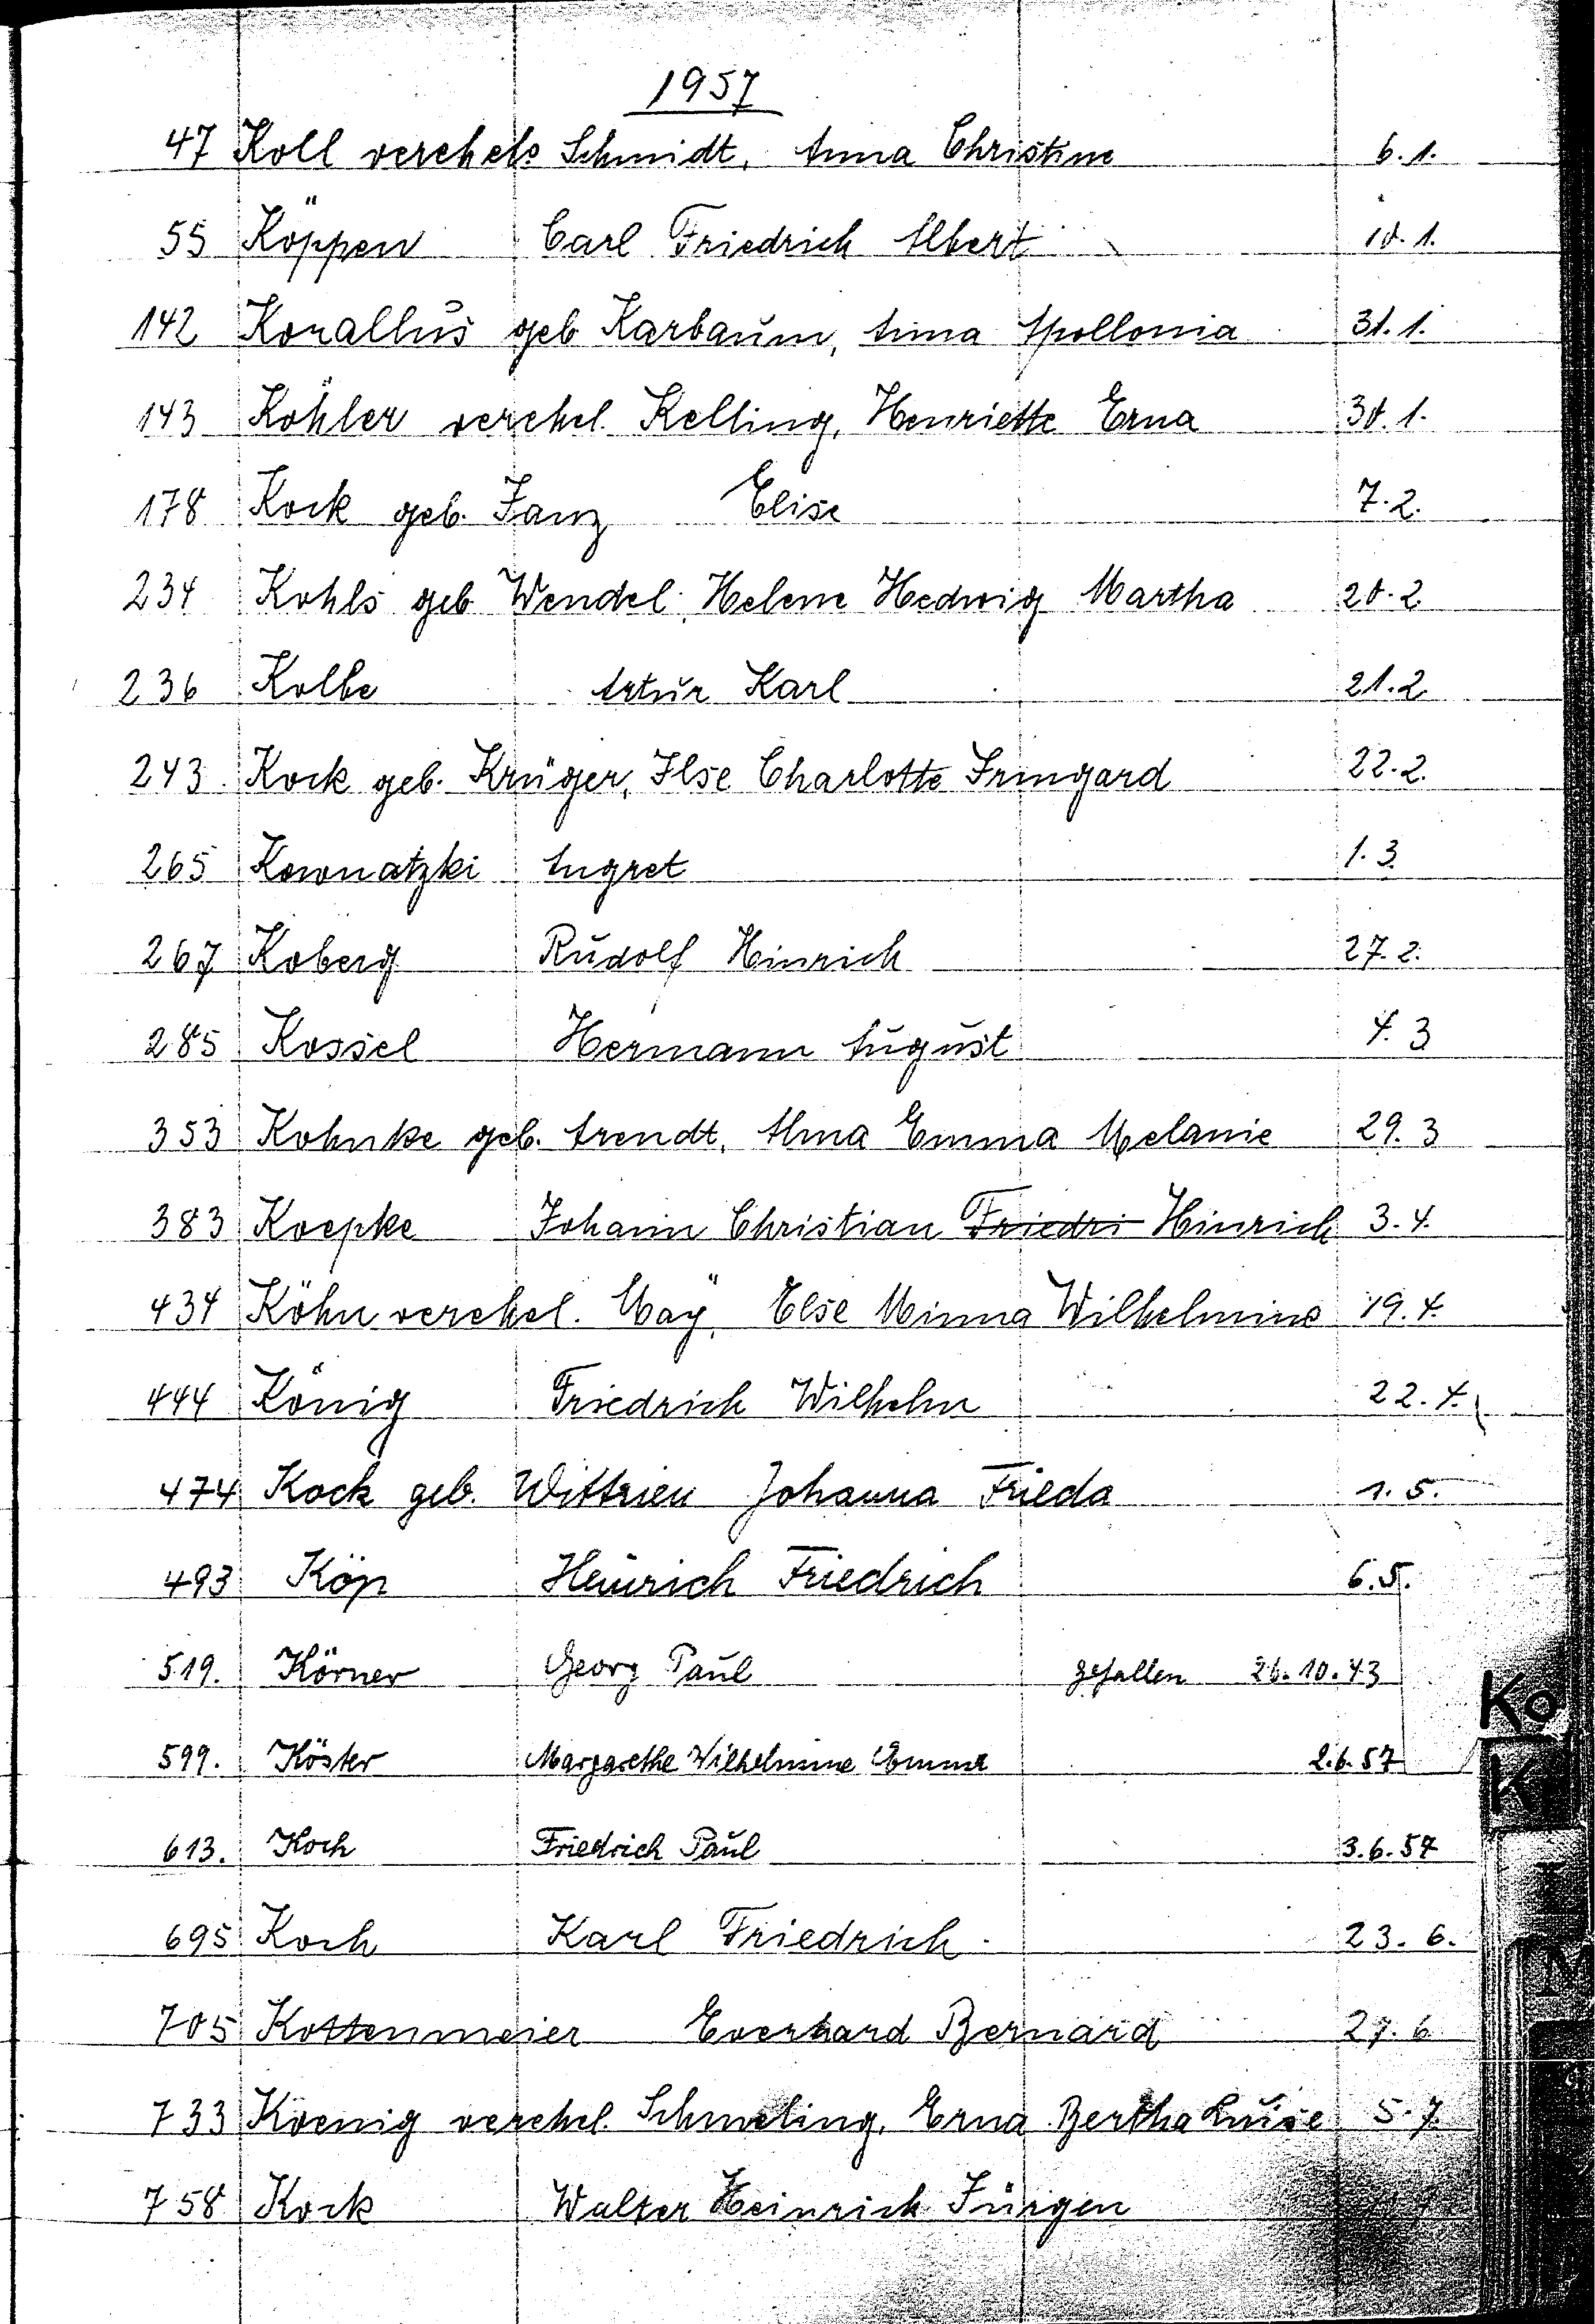 1957
47 Koll verehel. Schmidt, Anna Christine 6.1.
55 Köppen Carl Friedrich Albert 10.1.
142 Korallus geb Karbaum, Anna Apollonia 31.1.
143 Köhler verehel. Kelling, Henriette Erna 30.1.
178 Kock geb. Janz Elise 7.2.
234 Kohls geb Wendel, Helene Hedwig Martha 20.2
236 Kolbe Artur Karl 21.2
243 Kock geb. Krüger, Ilse Charlotte Irmgard 22.2.
265 Kownatzki Angret 1.3
267 Koberg Rudolf Hinrich 27.2.
285 Kossel Hermann August 4.3
353 Kohnke geb. Arendt, Alma Emma Melanie 29.3
383 Koepke Johann Christian Friedri Hinrich 3.4.
434 Köhn verehel. Maÿ, Else Minna Wilhelmine 19.4.
444 König Friedrich Wilhelm 22.4.
474 Kock geb. Wittrien Johanna Frieda 1.5.
493 Köp Heinrich Friedrich 6.5.
519. Körner Georg Paul gefallen 26.10.43
599. Köster Margarethe Wilhelmine Emma 2.6.57
613. Koch Friedrich Paul 3.6.57
695 Koch Karl Friedrich 23.6.
705 Kottenmeier Everhard Bernard 27.6
733 Koenig verehel. Schmeling, Erna Bertha Luise 5.7.
758 Kock Walter Heinrich Jürgen
Ko
K
M